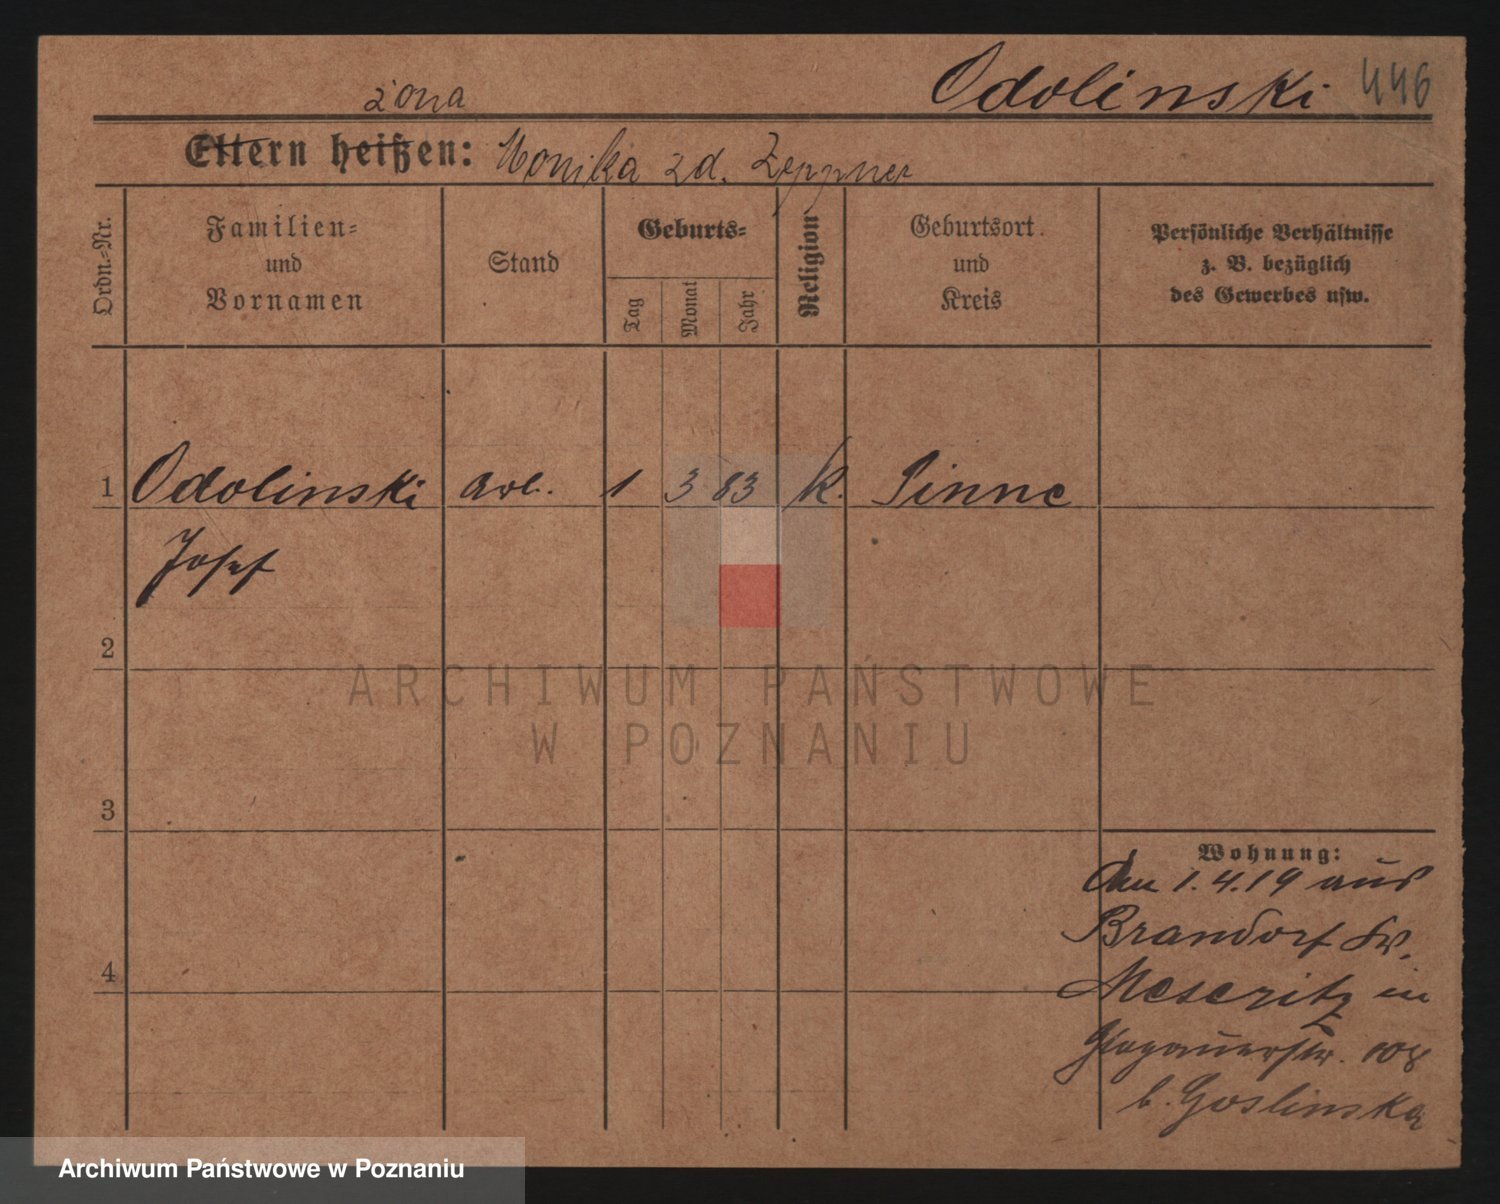 Odolinski 446
żona
Eltern heißen: Monika zd. Zeppner
Ordn.-Nr.
Familien-
und
Vornamen
Stand
Geburts-
Tag
Monat
Jahr
Religion
Geburtsort
und
Kreis
Persönliche Verhältnisse
z. B. bezüglich
des Gewerbes usw.
1 Odolinski Arb. 1 3 83 k. Pinne
Josef
2
ARCHIWUM PAŃSTWOWE
W POZNANIU
3
Wohnung:
Am 1.4.19 aus
Brandorf Kr.
Meseritz in
Glogauerstr. 108
b. Goslinska
4
Archiwum Państwowe w Poznaniu